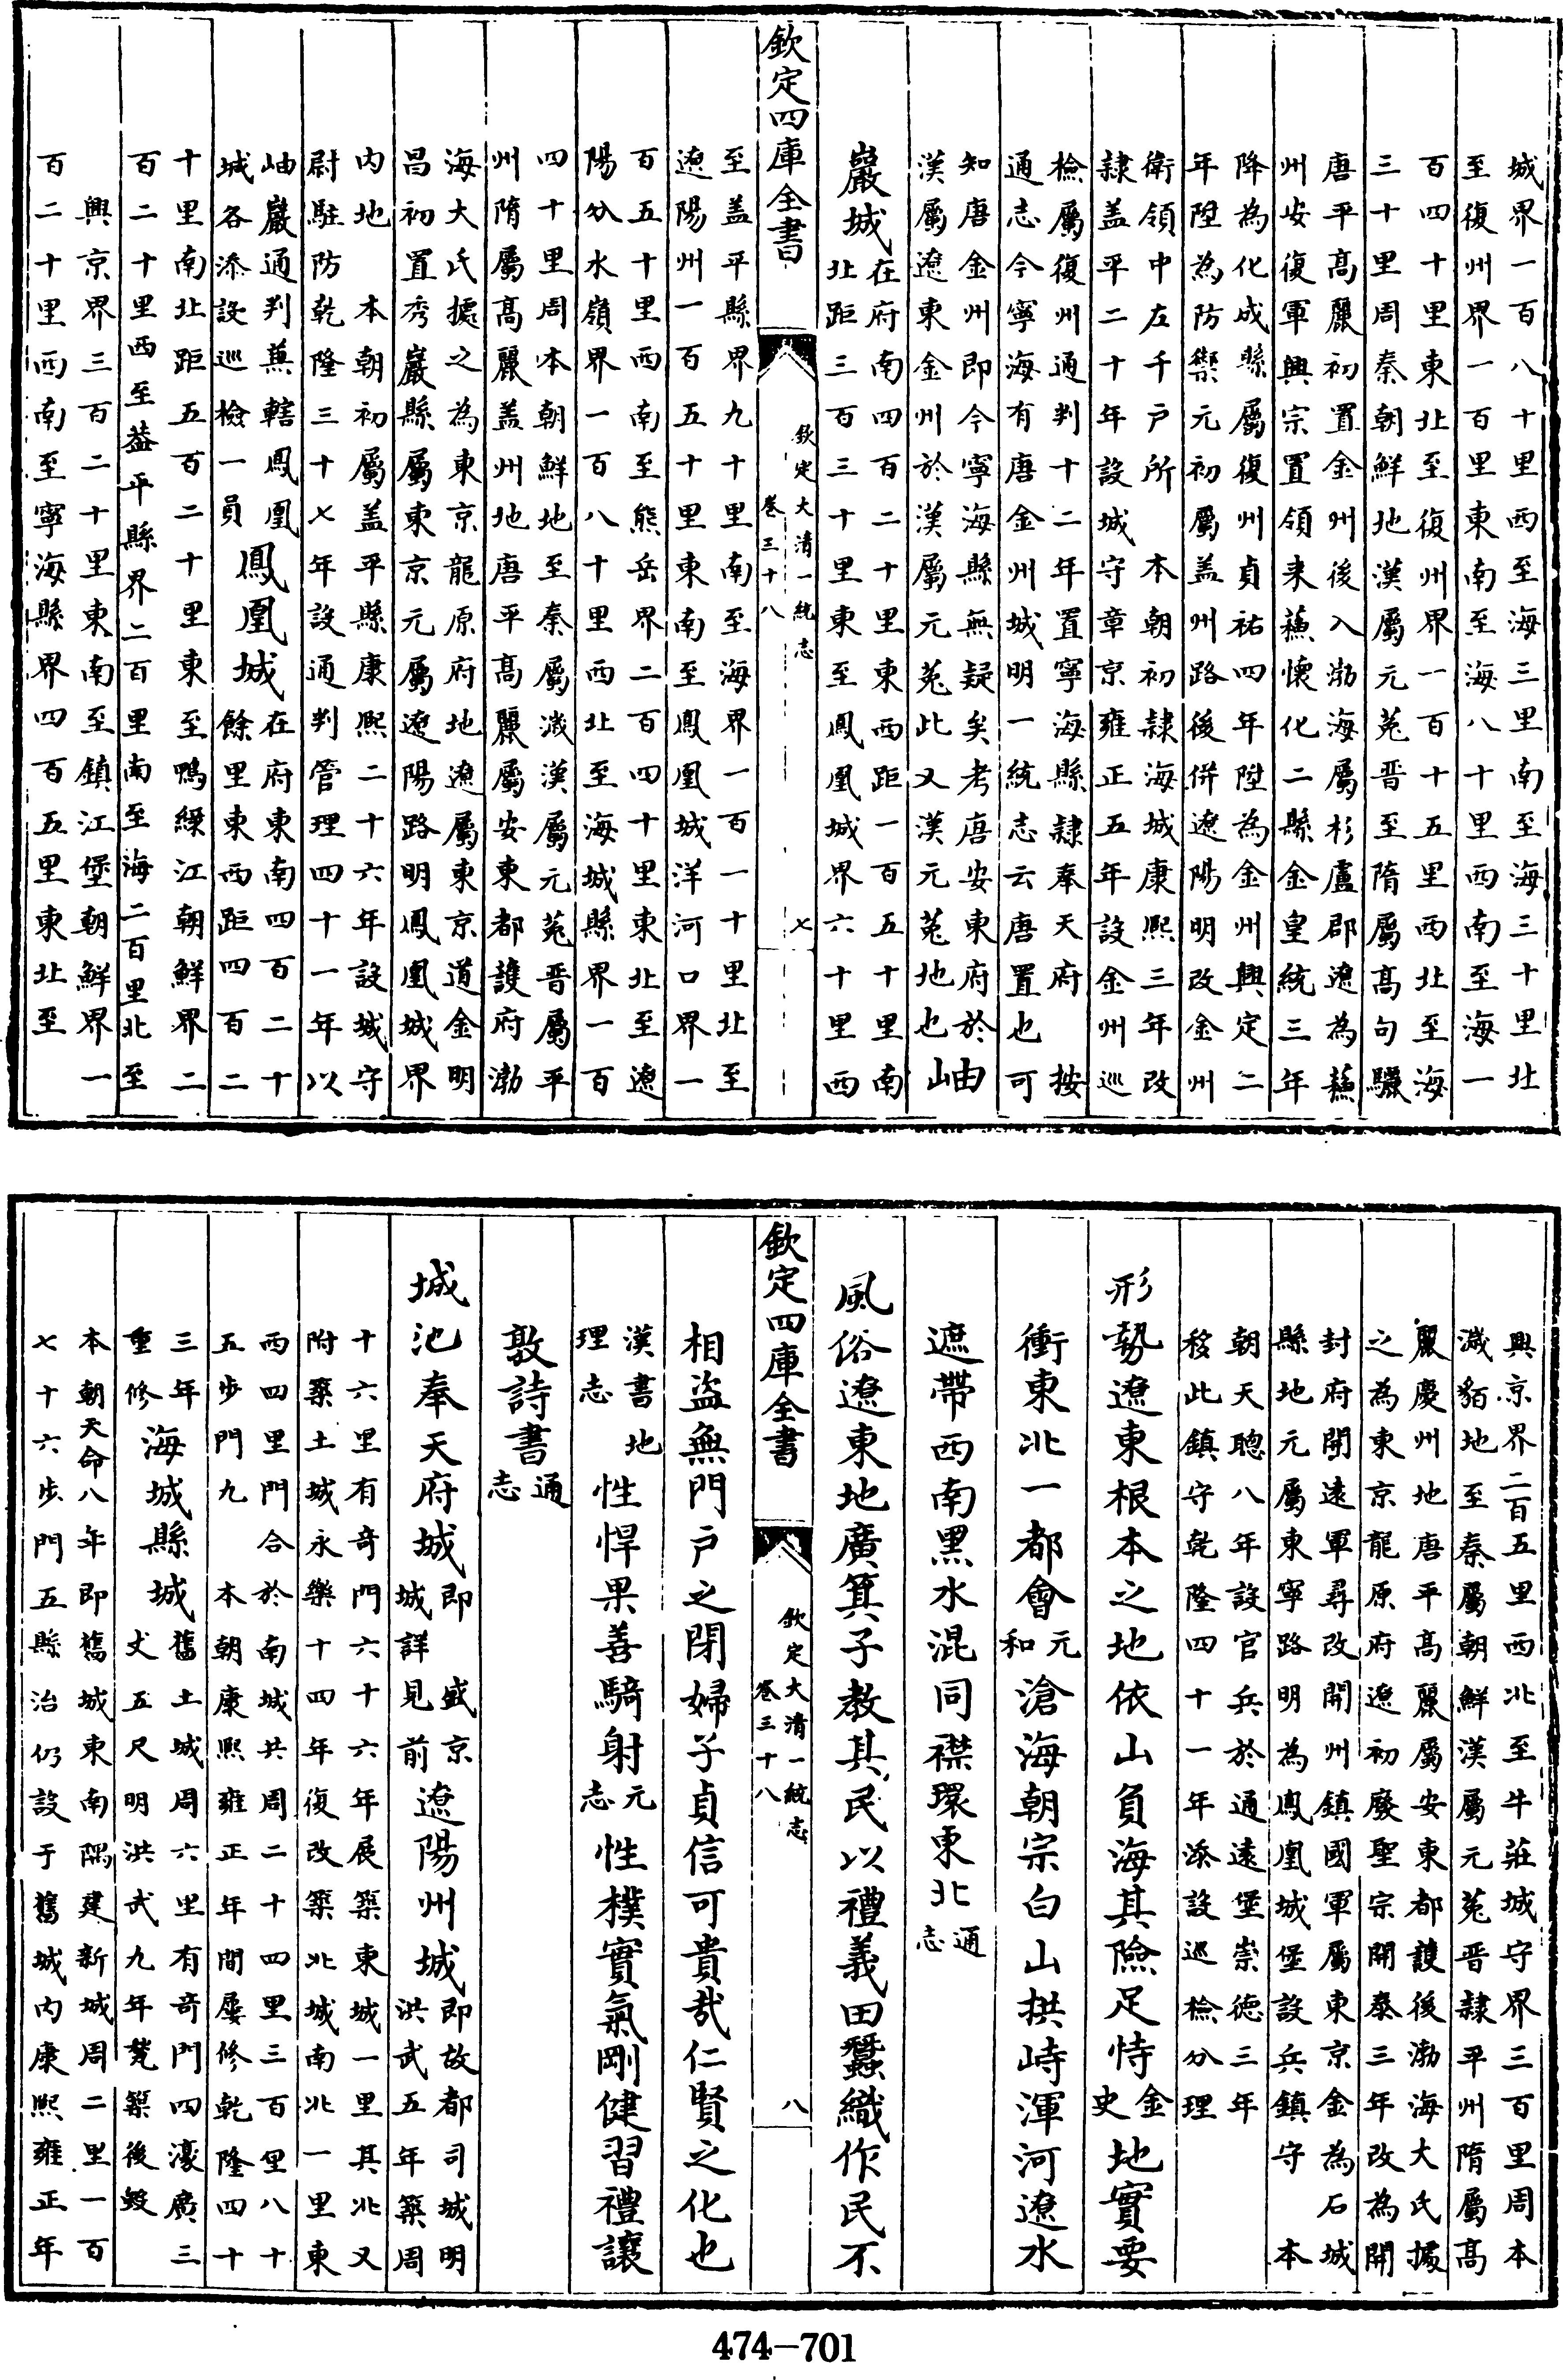 城界一百八十里西至海三里南至海三十里北
至復州界一百里東南至海八十里西南至海一
百四十里東北至復州界一百十五里西北至海
三十里周秦朝鮮地漢屬元菟晋至隋屬高句驪
唐平高麗初置金州後入渤海屬杉盧郡遼為蘓
州安復軍興宗置領来蘓懷化二縣金皇統三年
降為化成縣屬復州貞祐四年陞為金州興定二
年陞為防禦元初屬盖州路後併遼陽明改金州
衛領中左千戶所 本朝初隷海城康熙三年改
隷盖平二十年設城守章京雍正五年設金州巡
檢屬復州通判十二年置寧海縣隷奉天府 按
通志今寧海有唐金州城明一統志云唐置也可
知唐金州即今寧海縣無疑矣考唐安東府於
漢屬遼東金州於漢屬元菟此又漢元菟地也 岫
巖城 在府南四百二十里東西距一百五十里南
北距三百三十里東至鳳凰城界六十里西
欽定四庫全書 欽定大清一統志 卷三十八 七
至盖平縣界九十里南至海界一百一十里北至
遼陽州一百五十里東南至鳳凰城洋河口界一
百五十里西南至熊岳界二百四十里東北至遼
陽分水嶺界一百八十里西北至海城縣界一百
四十里周本朝鮮地至秦屬滅漢屬元菟晋屬平
州隋屬高麗盖州地唐平高麗屬安東都護府渤
海大氏據之為東京龍原府地遼屬東京道金明
昌初置秀巖縣屬東京元屬遼陽路明鳳凰城界
内地 本朝初屬盖平縣康熙二十六年設城守
尉駐防乾隆三十七年設通判管理四十一年以
岫巖通判蒹轄鳳凰
城各添設巡檢一員
鳳凰城 在府東南四百二十
餘里東西距四百二
十里南北距五百二十里東至鴨緑江朝鮮界二
百二十里西至葢平縣界二百里南至海二百里北至
興京界三百二十里東南至鎮江堡朝鮮界一
百二十里西南至寧海縣界四百五里東北至
興京界二百五里西北至牛莊城守界三百里周本
滅貊地至秦屬朝鮮漢屬元菟晋隷平州隋屬高
麗慶州地唐平高麗屬安東都護後渤海大氏據
之為東京龍原府遼初廢聖宗開泰三年改為開
封府開遠軍尋改開州鎮國軍屬東京金為石城
縣地元屬東寧路明為鳳凰城堡設兵鎮守 本
朝天聰八年設官兵於通遠堡崇徳三年
移此鎮守乾隆四十一年添設巡檢分理
形勢遼東根本之地依山負海其險足恃 金史 地實要
衝東北一都會 元和 滄海朝宗白山拱峙渾河遼水
遮帶西南黑水混同襟環東北 通志
風俗遼東地廣箕子教其民以禮義田蠶織作民不
欽定四庫全書 欽定大清一統志 卷三十八 八
相盜無門戶之閉婦子貞信可貴哉仁賢之化也
漢書地理志 性悍果善騎射 元志 性樸實氣剛健習禮讓
敦詩書 通志
城池奉天府城 即 盛京
城詳見前
遼陽州城 即故都司城明
洪武五年築周
十六里有奇門六十六年展築東城一里其北又
附築土城永樂十四年復改築北城南北一里東
西四里門合於南城共周二十四里三百里八十
五步門九 本朝康熙雍正年間屢修乾隆四十
三年
重修
海城縣城 舊土城周六里有奇門四濠廣三
丈五尺明洪武九年甃築後毀
本朝天命八年即舊城東南隅建新城周二里一百
七十六步門五縣治仍設于舊城内康熙雍正年
474-701